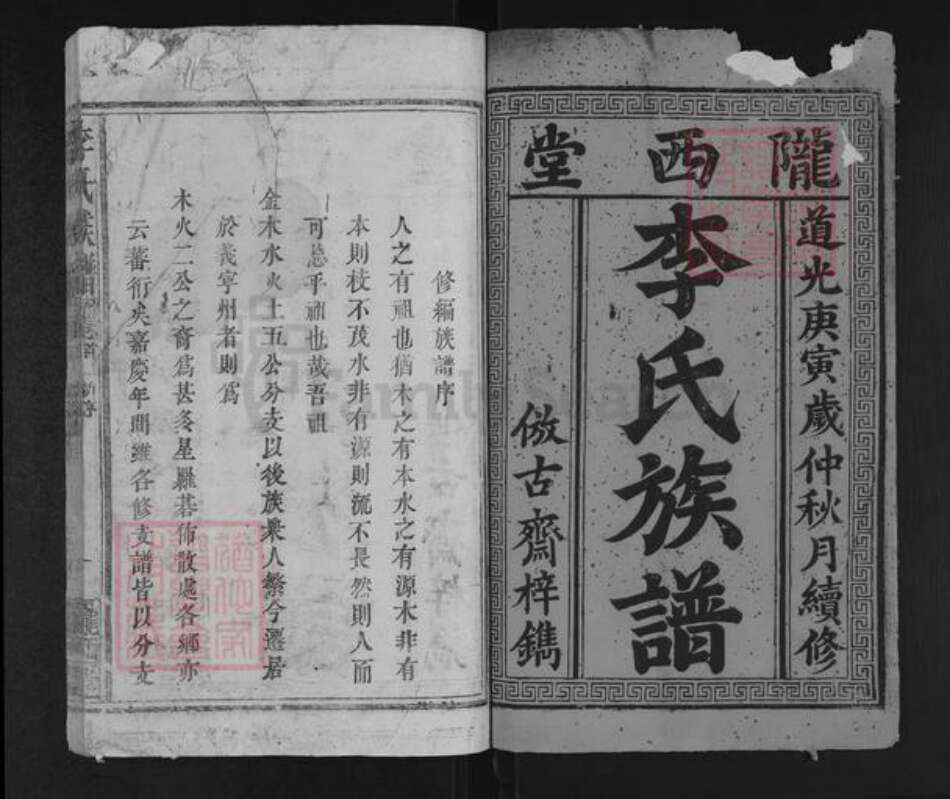 隴西堂
道光庚寅歲仲秋月續修
李氏族譜
倣古齋梓鐫
修編族譜序
人之有祖也猶木之有本水之有源木非有
本則枝不茂水非有源則流不長然則人而
可忘乎祖也哉吾祖
金木水火土五公分支以後族衆人繁今遷居
於義寧州者則爲
木火二公之裔爲甚多星羅碁佈散處各鄉亦
云蕃衍矣嘉慶年間雖各修支譜皆以分支
李氏族譜